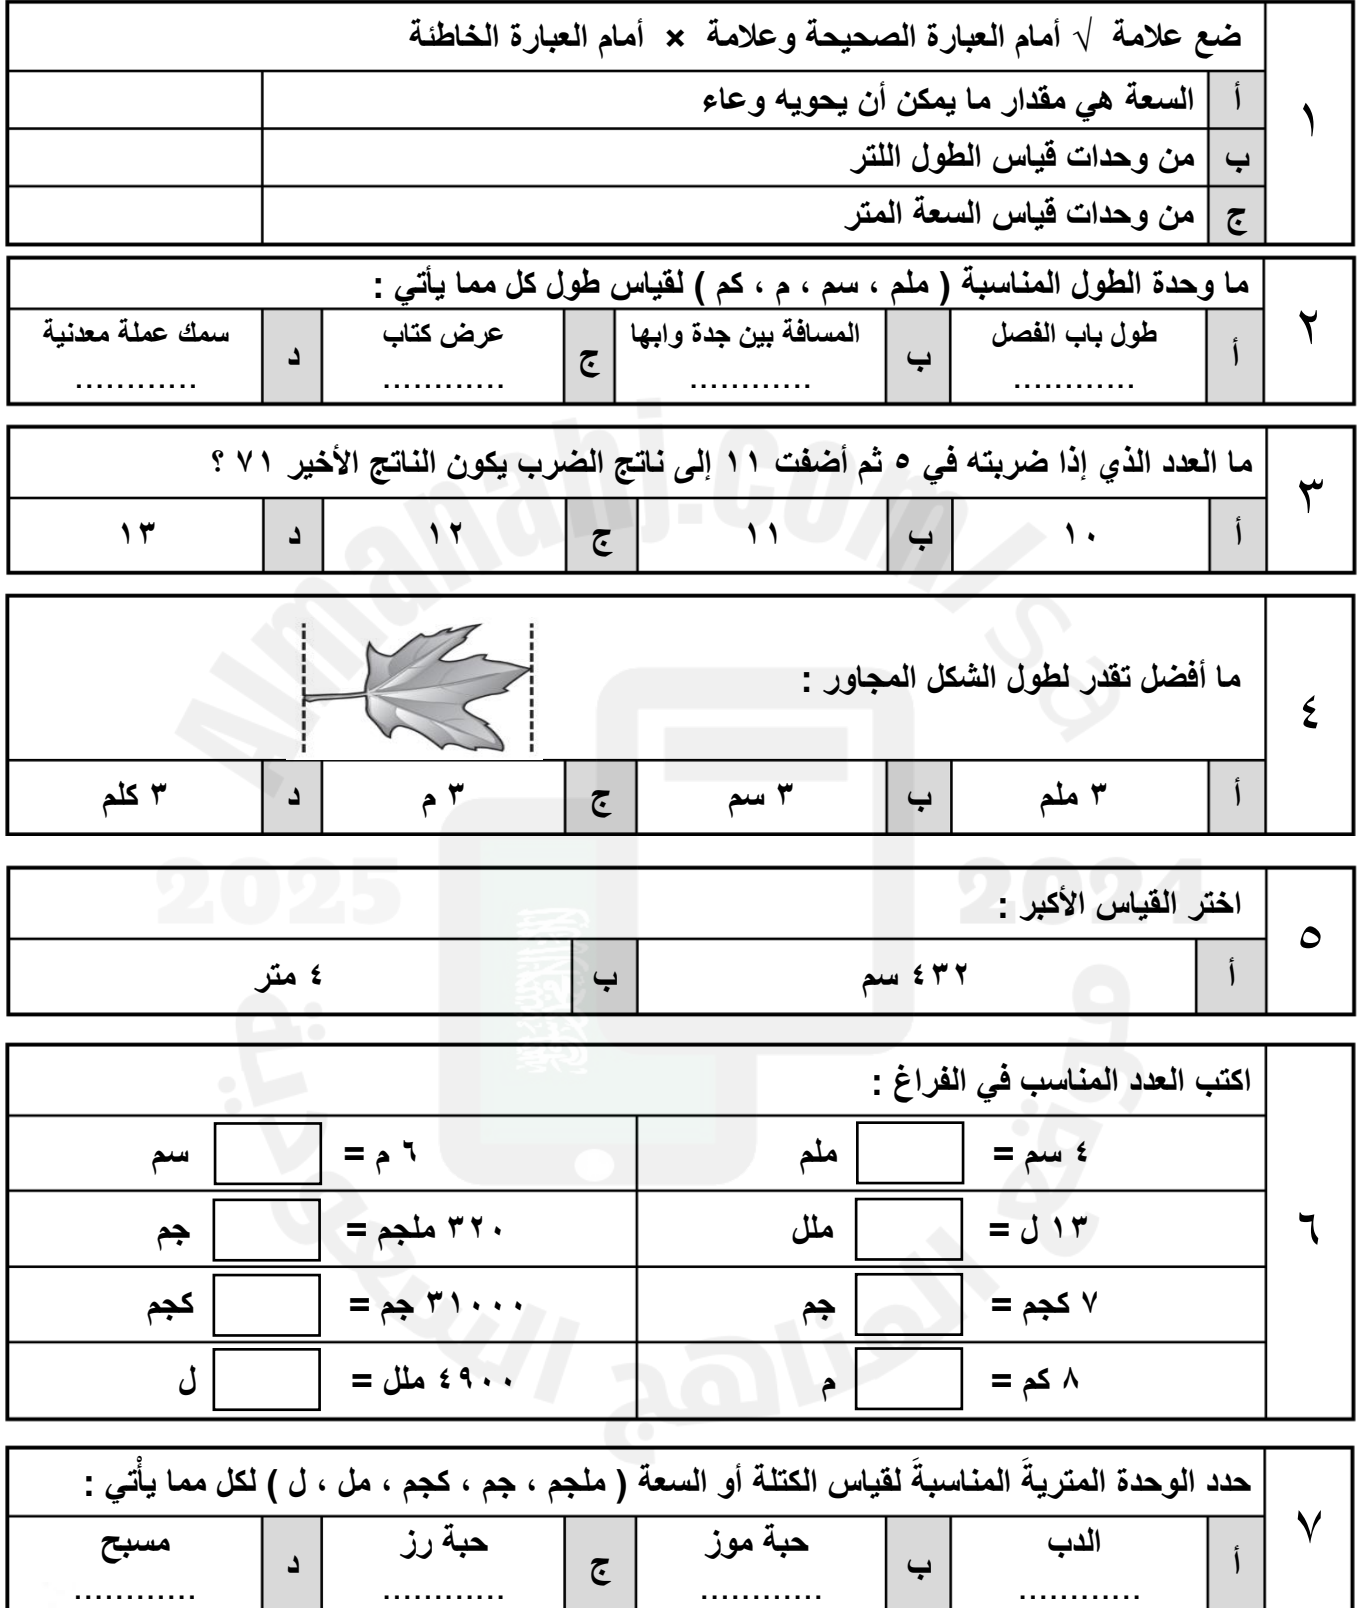 ١
ضع علامة √ أمام العبارة الصحيحة وعلامة × أمام العبارة الخاطئة
أ السعة هي مقدار ما يمكن أن يحويه وعاء
ب من وحدات قياس الطول اللتر
ج من وحدات قياس السعة المتر
٢
ما وحدة الطول المناسبة ( ملم ، سم ، م ، كم ) لقياس طول كل مما يأتي :
أ طول باب الفصل ............
ب المسافة بين جدة وابها ............
ج عرض كتاب ............
د سمك عملة معدنية ............
٣
ما العدد الذي إذا ضربته في ٥ ثم أضفت ١١ إلى ناتج الضرب يكون الناتج الأخير ٧١ ؟
أ ١٠ ب ١١ ج ١٢ د ١٣
٤
ما أفضل تقدر لطول الشكل المجاور :
أ ٣ ملم ب ٣ سم ج ٣ م د ٣ كلم
٥
اختر القياس الأكبر :
أ ٤٣٢ سم ب ٤ متر
٦
اكتب العدد المناسب في الفراغ :
٤ سم = ملم ٦ م = سم
١٣ ل = ملل ٣٢٠ ملجم = جم
٧ كجم = جم ٣١٠٠٠ جم = كجم
٨ كم = م ٤٩٠٠ ملل = ل
٧
حدد الوحدة المتريةَ المناسبةَ لقياس الكتلة أو السعة ( ملجم ، جم ، كجم ، مل ، ل ) لكل مما يأْتي :
أ الدب ............
ب حبة موز ............
ج حبة رز ............
د مسبح ............
Almanahj.com/sa
2025 2024
موقع المناهج السعودية